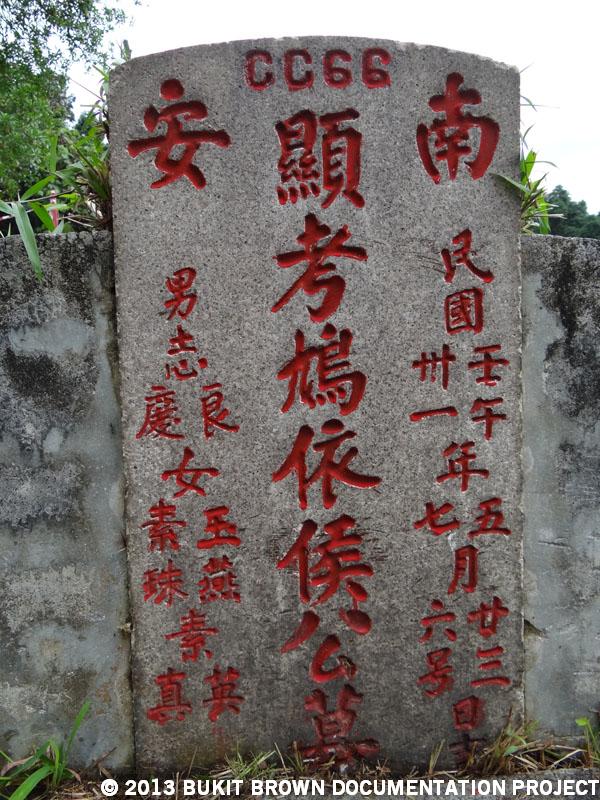 CC66
南安
顯考鳩依侯公墓
民國
壬午
卅一
年
五
七
月
廿三日
六号
男志
良
慶
女
玉燕
素珠
素
英
真
© 2013 BUKIT BROWN DOCUMENTATION PROJECT